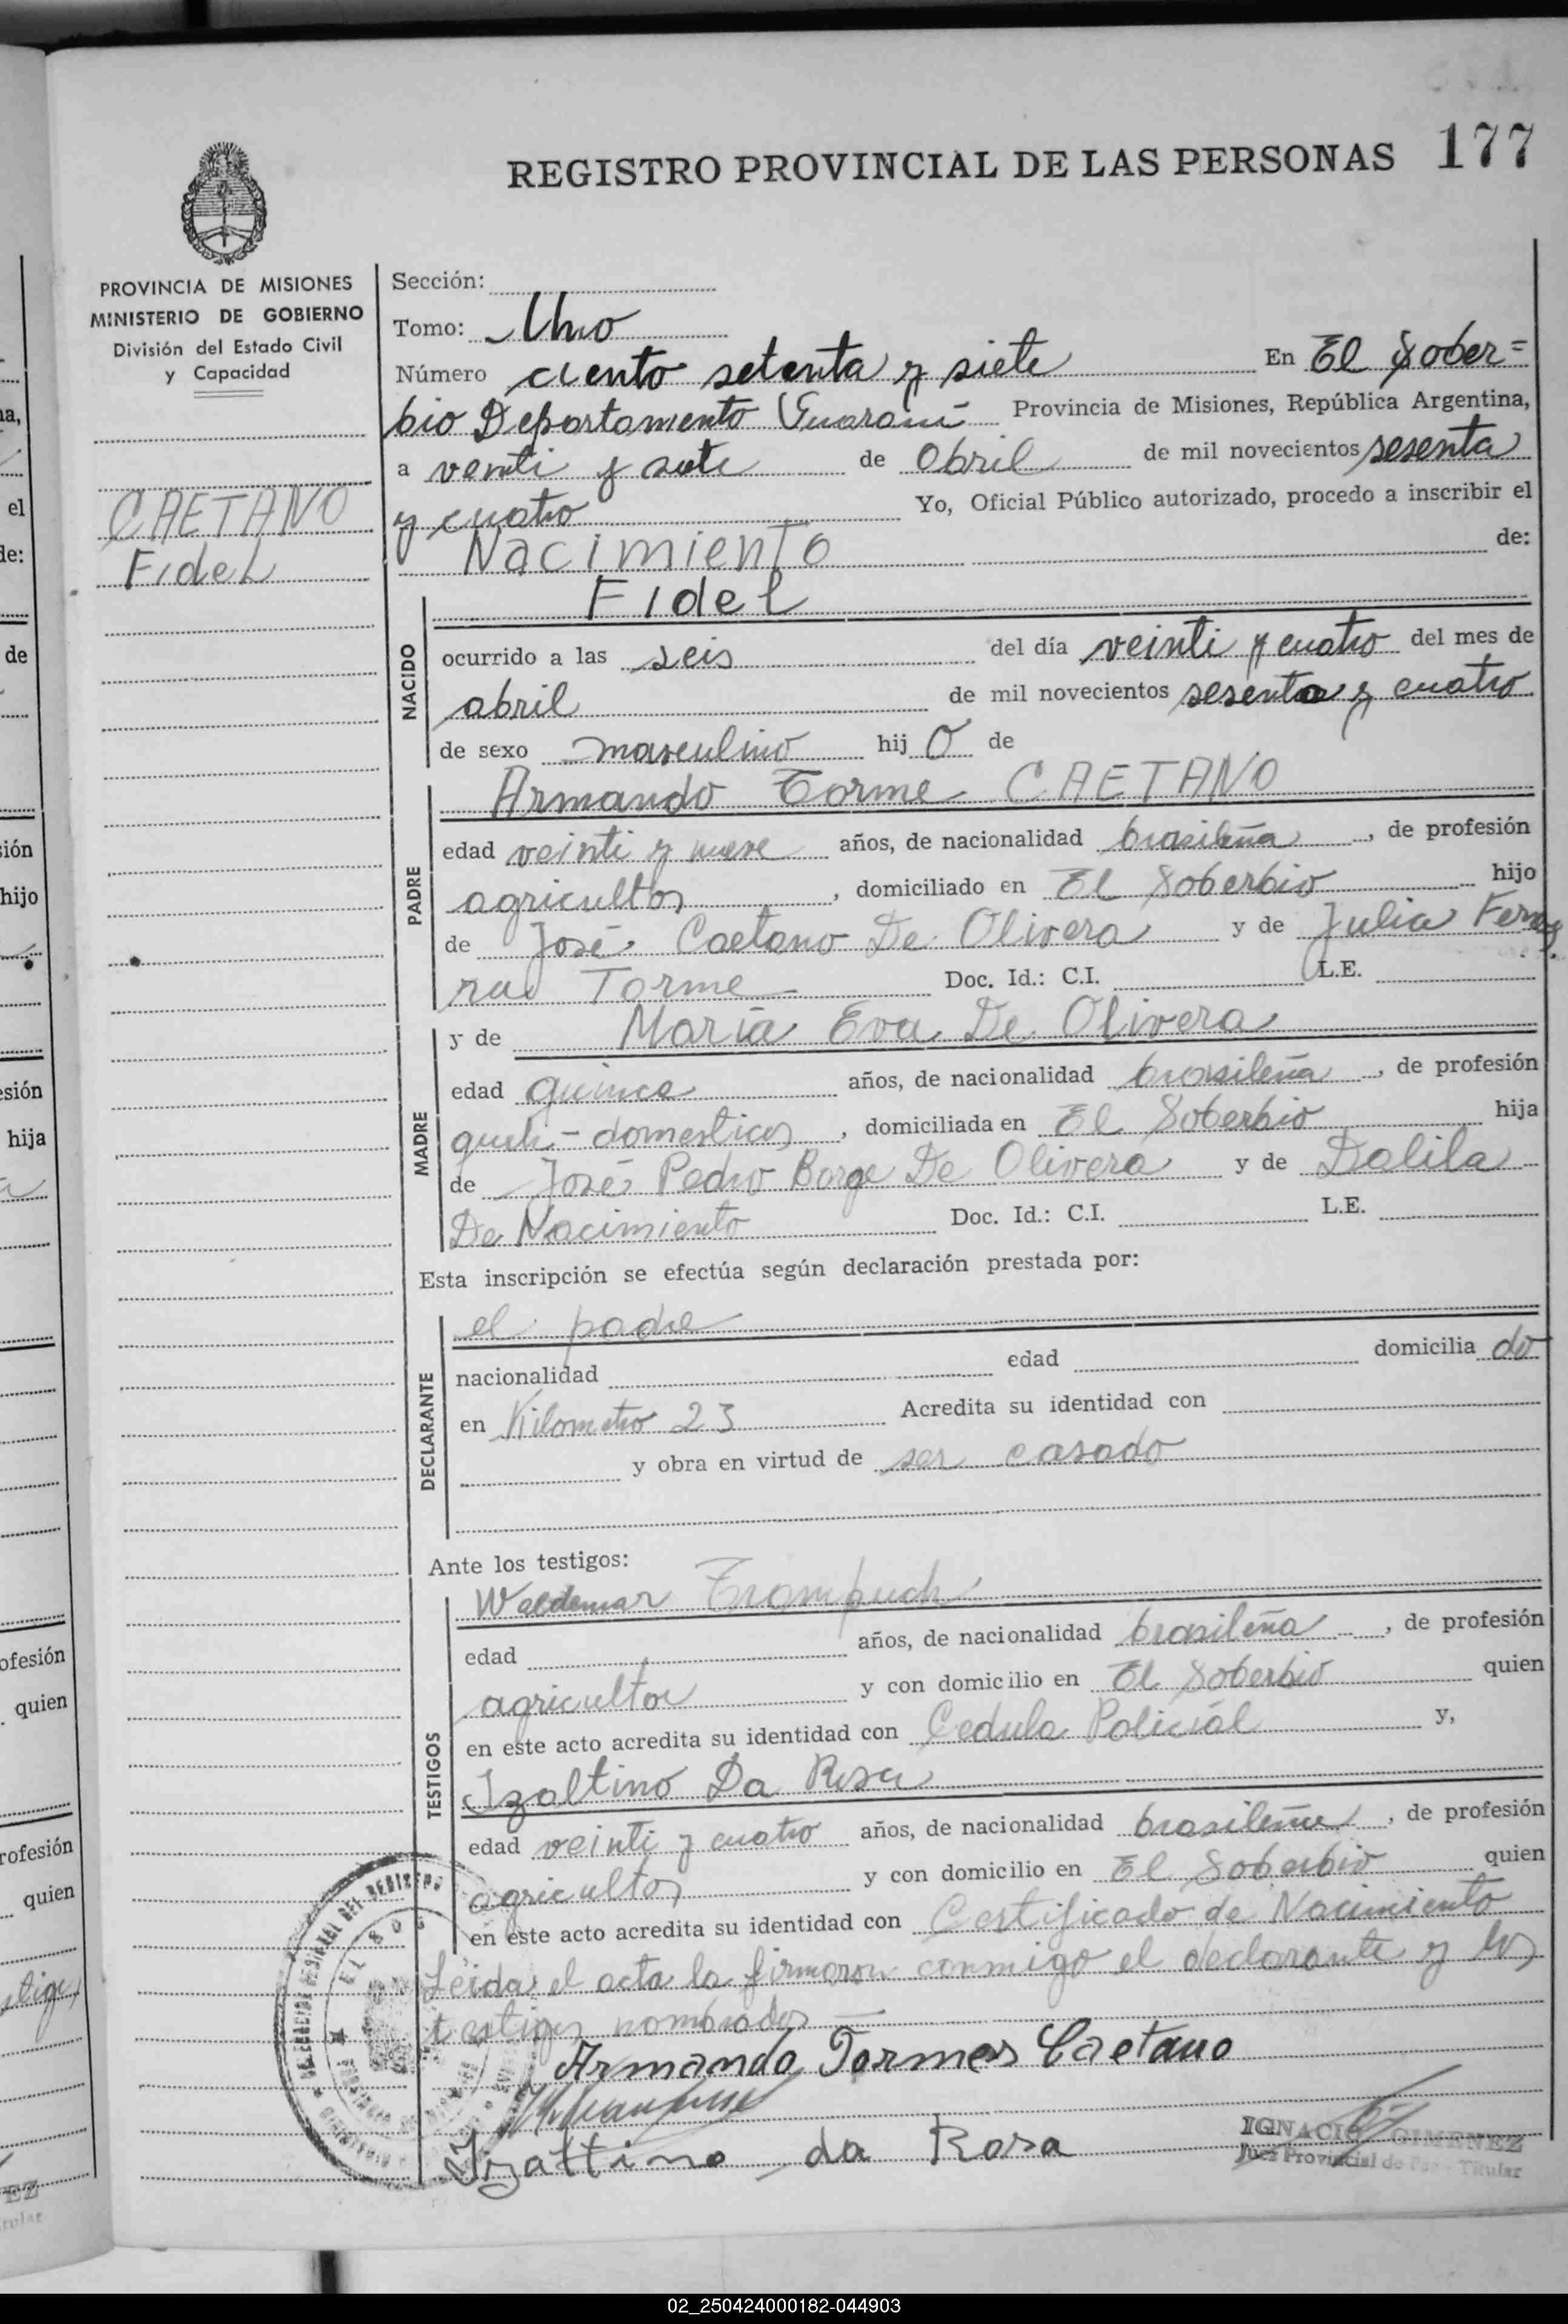 REGISTRO PROVINCIAL DE LAS PERSONAS 177
PROVINCIA DE MISIONES
MINISTERIO DE GOBIERNO
División del Estado Civil
y Capacidad
CAETANO
Fidel
Sección:
Tomo: Uno
Número ciento setenta y siete En El Sober=
bio Departamento Guaraní Provincia de Misiones, República Argentina,
a veinti y siete de Abril de mil novecientos sesenta
y cuatro Yo, Oficial Público autorizado, procedo a inscribir el
Nacimiento de:
Fidel
NACIDO
ocurrido a las seis del día veinti y cuatro del mes de
abril de mil novecientos sesenta y cuatro
de sexo masculino hij o de
Armando Torme CAETANO
PADRE
edad veinti y nueve años, de nacionalidad brasileña, de profesión
agricultor, domiciliado en El Soberbio hijo
de José Caetano De Olivera y de Julia
Torme Doc. Id.: C.I. L.E.
y de Maria Eva De Olivera
MADRE
edad quince años, de nacionalidad brasileña, de profesión
domesticos, domiciliada en El Soberbio hija
de José Pedro Borge De Olivera y de Dalila
De Nacimiento Doc. Id.: C.I. L.E.
Esta inscripción se efectúa según declaración prestada por:
el padre
DECLARANTE
nacionalidad edad domicilia do
en Kilometro 23 Acredita su identidad con
y obra en virtud de ser casado
Ante los testigos:
Waldemar Trompuch
TESTIGOS
edad años, de nacionalidad brasileña, de profesión
agricultor y con domicilio en El Soberbio quien
en este acto acredita su identidad con Cedula Policial y,
Izaltino Da Rosa
edad veinti y cuatro años, de nacionalidad brasileña, de profesión
agricultor y con domicilio en El Soberbio quien
en este acto acredita su identidad con Certificado de Nacimiento
Leida el acta la firmaron conmigo el declarante y los
testigos nombrados
Armando Tormes Caetano
Izattino da Rosa
IGNACIO GIMENEZ
Juez Provincial de Paz - Titular
02_250424000182-044903